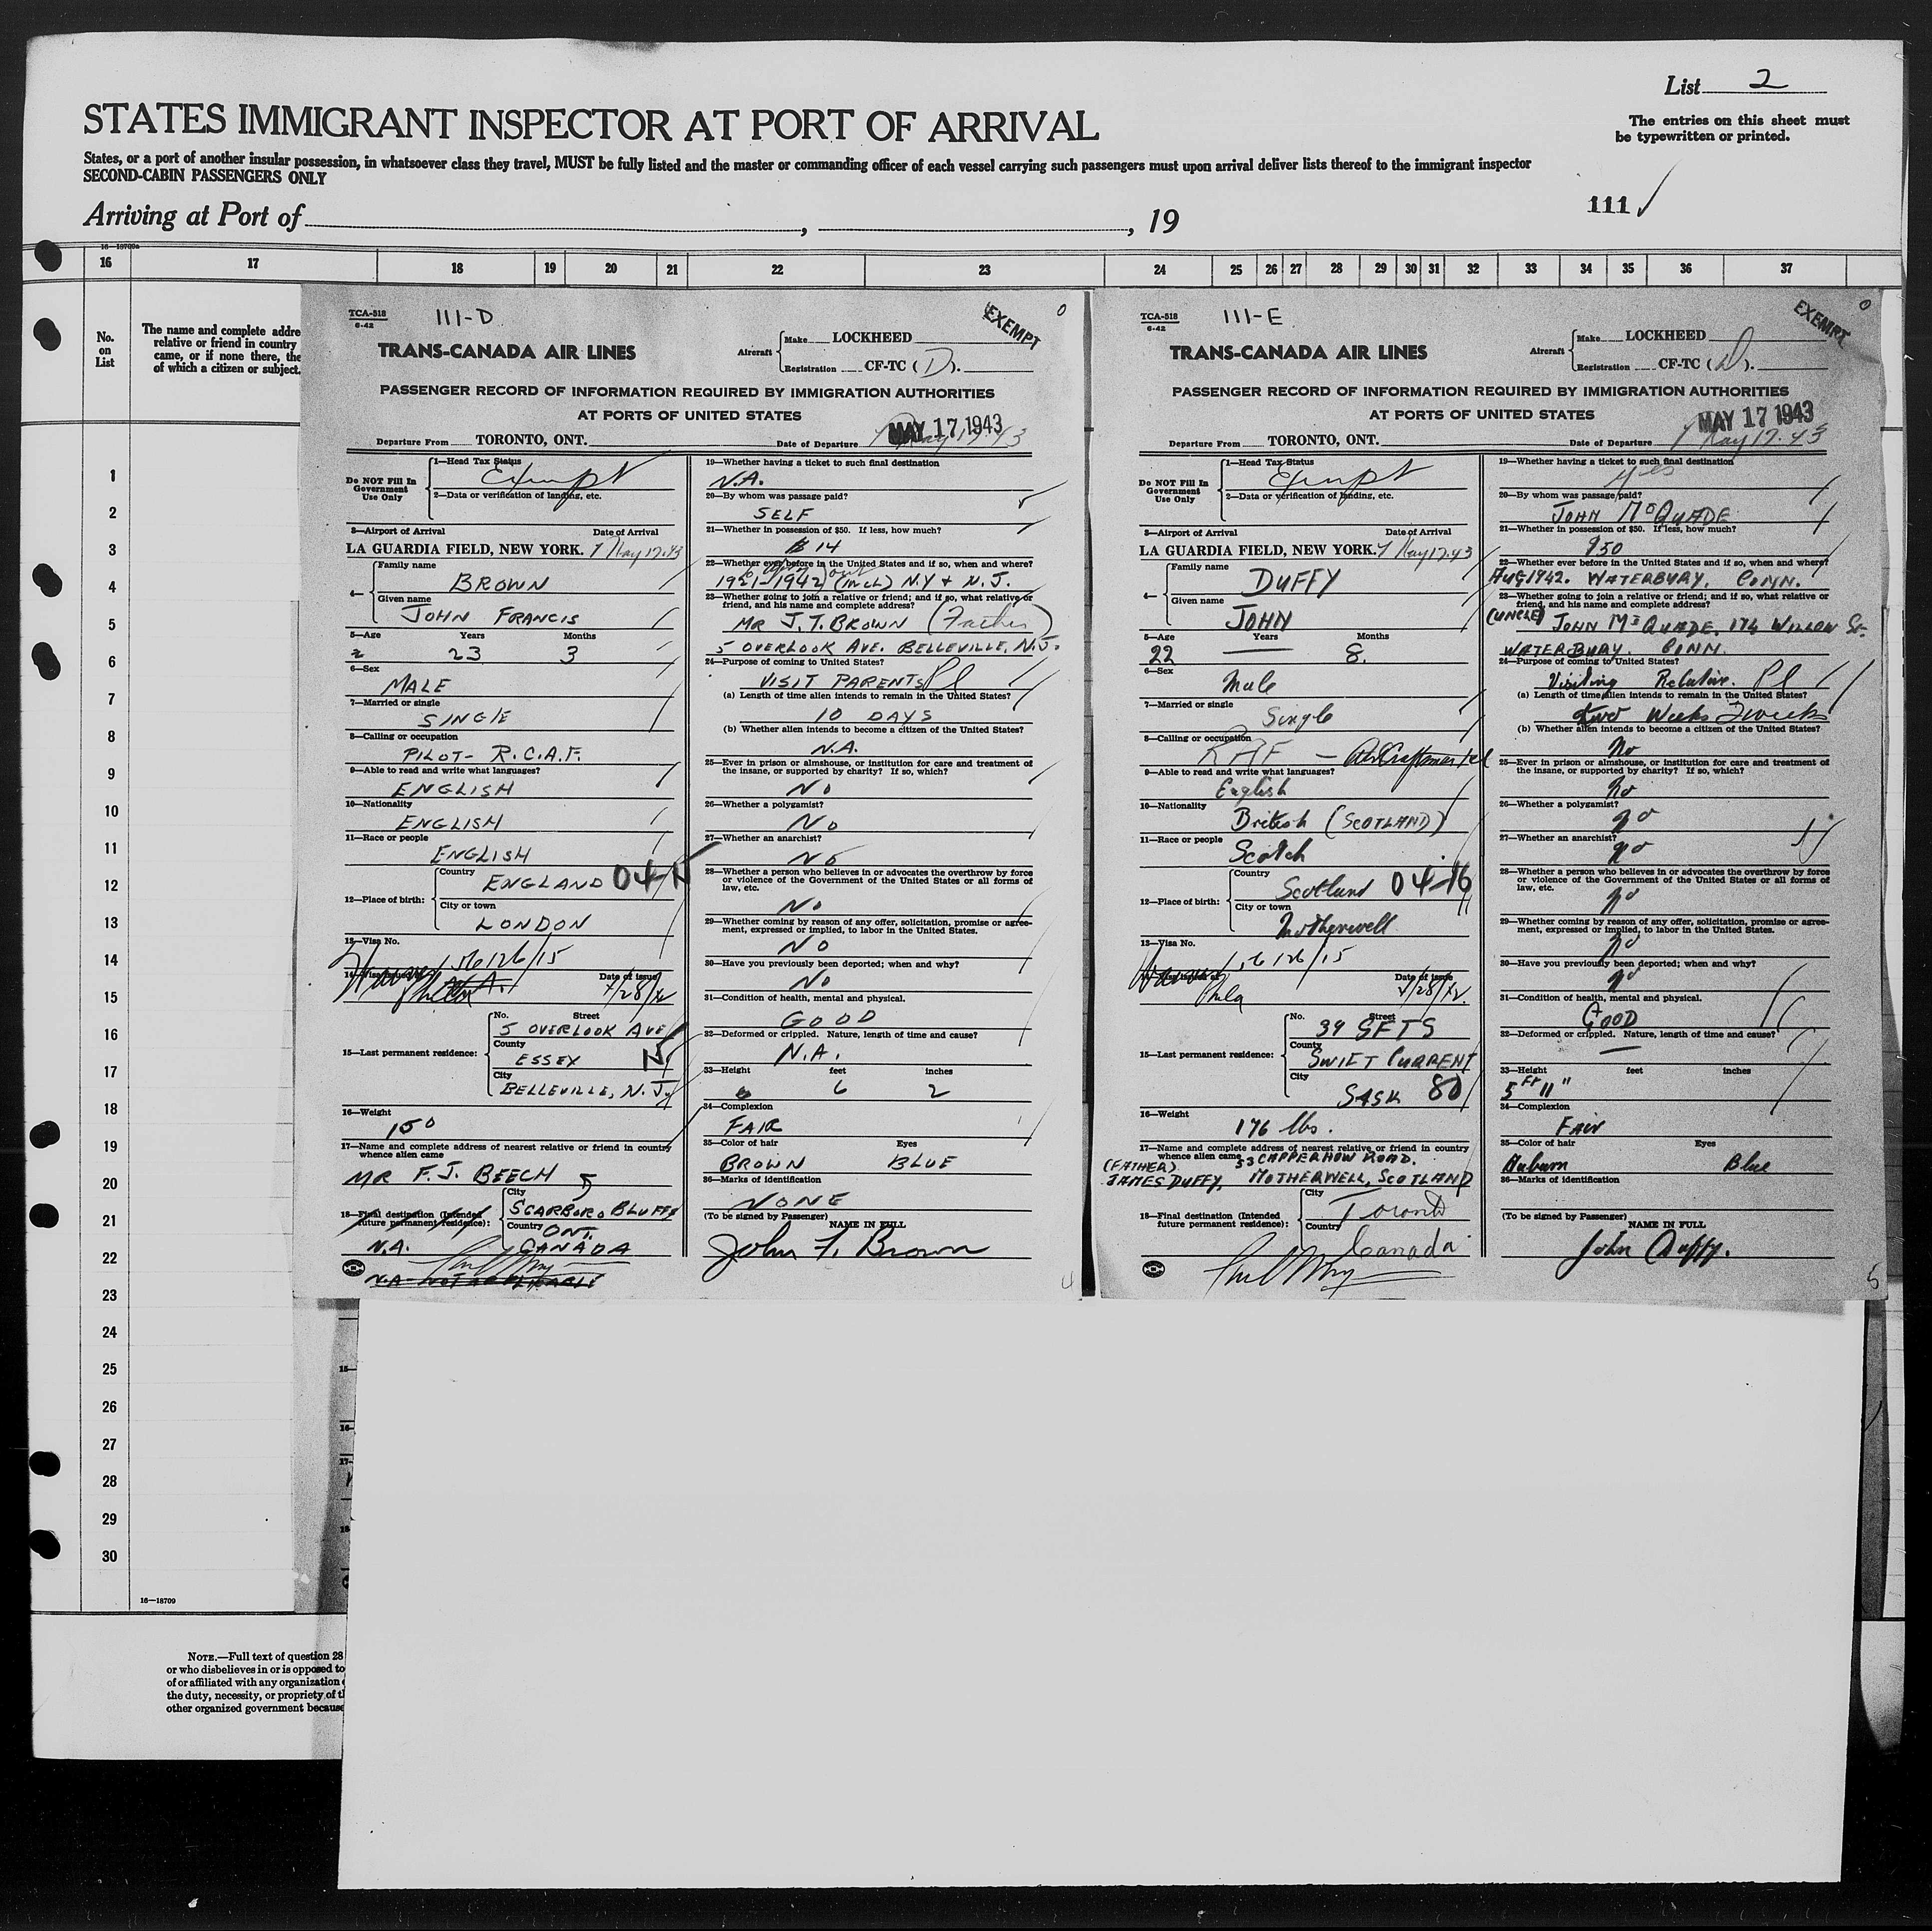 List 2
STATES IMMIGRANT INSPECTOR AT PORT OF ARRIVAL
The entries on this sheet must
be typewritten or printed.
States, or a port of another insular possession, in whatsoever class they travel, MUST be fully listed and the master or commanding officer of each vessel carrying such passengers must upon arrival deliver lists thereof to the immigrant inspector
SECOND-CABIN PASSENGERS ONLY
Arriving at Port of , , 19
111
16—18709a
16 17 18 19 20 21 22 23 24 25 26 27 28 29 30 31 32 33 34 35 36 37
No.
on
List
The name and complete addre
relative or friend in country
came, or if none there, the
of which a citizen or subject.
1
2
3
4
5
6
7
8
9
10
11
12
13
14
15
16
17
18
19
20
21
22
23
24
25
26
27
28
29
30
16—18709
NOTE.—Full text of question 28
or who disbelieves in or is opposed to
of or affiliated with any organization
the duty, necessity, or propriety of t
other organized government because
TCA-518
6-42
111-D
EXEMPT
0
TRANS-CANADA AIR LINES
Aircraft
Make LOCKHEED
Registration CF-TC (D).
PASSENGER RECORD OF INFORMATION REQUIRED BY IMMIGRATION AUTHORITIES
AT PORTS OF UNITED STATES
MAY 17 1943
Departure From TORONTO, ONT. Date of Departure May 17.43
Do NOT Fill In
Government
Use Only
1—Head Tax Status
Exempt
2—Data or verification of landing, etc.
3—Airport of Arrival Date of Arrival
LA GUARDIA FIELD, NEW YORK. May 17.43
4— Family name
BROWN
Given name
JOHN FRANCIS
5—Age Years Months
23 3
6—Sex
MALE
7—Married or single
SINGLE
8—Calling or occupation
PILOT - R.C.A.F.
9—Able to read and write what languages?
ENGLISH
10—Nationality
ENGLISH
11—Race or people
ENGLISH
12—Place of birth:
Country
ENGLAND 04-15
City or town
LONDON
13—Visa No.
156126/15
14—Visa issued at Date of issue
15—Last permanent residence:
No. Street
5 OVERLOOK AVE
County
ESSEX
City
BELLEVILLE, N.J.
16—Weight
150
17—Name and complete address of nearest relative or friend in country
whence alien came
MR F. J. BEECH
City
SCARBORO BLUFFS
ONT.
18—Final destination (Intended
future permanent residence):
Country
N.A. CANADA
N.A - NOT APPLICABLE
19—Whether having a ticket to such final destination
N.A.
20—By whom was passage paid?
SELF
21—Whether in possession of $50. If less, how much?
$ 14
22—Whether ever before in the United States and if so, when and where?
1921-1942 (INCL) N.Y & N.J.
23—Whether going to join a relative or friend; and if so, what relative or
friend, and his name and complete address?
MR J. T. BROWN (Father)
5 OVERLOOK AVE. BELLEVILLE, N.J.
24—Purpose of coming to United States?
VISIT PARENTS Pl
(a) Length of time alien intends to remain in the United States?
10 DAYS
(b) Whether alien intends to become a citizen of the United States?
N.A.
25—Ever in prison or almshouse, or institution for care and treatment of
the insane, or supported by charity? If so, which?
NO
26—Whether a polygamist?
NO
27—Whether an anarchist?
NO
28—Whether a person who believes in or advocates the overthrow by force
or violence of the Government of the United States or all forms of
law, etc.
NO
29—Whether coming by reason of any offer, solicitation, promise or agree-
ment, expressed or implied, to labor in the United States.
NO
30—Have you previously been deported; when and why?
NO
31—Condition of health, mental and physical.
GOOD
32—Deformed or crippled. Nature, length of time and cause?
N.A.
33—Height feet inches
6 2
34—Complexion
FAIR
35—Color of hair Eyes
BROWN BLUE
36—Marks of identification
NONE
(To be signed by Passenger)
NAME IN FULL
John F. Brown
4
TCA-518
6-42
111-E
EXEMPT
0
TRANS-CANADA AIR LINES
Aircraft
Make LOCKHEED
Registration CF-TC (D).
PASSENGER RECORD OF INFORMATION REQUIRED BY IMMIGRATION AUTHORITIES
AT PORTS OF UNITED STATES
MAY 17 1943
Departure From TORONTO, ONT. Date of Departure May 17.43
Do NOT Fill In
Government
Use Only
1—Head Tax Status
Exempt
2—Data or verification of landing, etc.
3—Airport of Arrival Date of Arrival
LA GUARDIA FIELD, NEW YORK. May 17.43
4— Family name
DUFFY
Given name
JOHN
5—Age Years Months
22 — 8.
6—Sex
Male
7—Married or single
Single
8—Calling or occupation
RAF — Aircraftman 1cl
9—Able to read and write what languages?
English
10—Nationality
British (SCOTLAND)
11—Race or people
Scotch
12—Place of birth:
Country
Scotland 04-16
City or town
Motherwell
13—Visa No.
156126/15
14—Visa issued at Date of issue
Phila
15—Last permanent residence:
No. Street
39 SFTS
County
SWIFT CURRENT
City
SASK 80
16—Weight
176 lbs.
17—Name and complete address of nearest relative or friend in country
whence alien came 53 CAPPERHOW ROAD.
(FATHER)
JAMES DUFFY, MOTHERWELL, SCOTLAND
18—Final destination (Intended
future permanent residence):
City
Toronto
Country
Canada
19—Whether having a ticket to such final destination
yes
20—By whom was passage paid?
JOHN McQUADE
21—Whether in possession of $50. If less, how much?
$50
22—Whether ever before in the United States and if so, when and where?
AUG 1942. WATERBURY, CONN.
23—Whether going to join a relative or friend; and if so, what relative or
friend, and his name and complete address?
(UNCLE) JOHN McQUADE. 174 WILLOW St.
WATERBURY. CONN.
24—Purpose of coming to United States?
Visiting Relative. Pl
(a) Length of time alien intends to remain in the United States?
Two Weeks 2 weeks
(b) Whether alien intends to become a citizen of the United States?
No
25—Ever in prison or almshouse, or institution for care and treatment of
the insane, or supported by charity? If so, which?
no
26—Whether a polygamist?
no
27—Whether an anarchist?
no
28—Whether a person who believes in or advocates the overthrow by force
or violence of the Government of the United States or all forms of
law, etc.
no
29—Whether coming by reason of any offer, solicitation, promise or agree-
ment, expressed or implied, to labor in the United States.
no
30—Have you previously been deported; when and why?
no
31—Condition of health, mental and physical.
GOOD
32—Deformed or crippled. Nature, length of time and cause?
—
33—Height feet inches
5 Ft 11"
34—Complexion
Fair
35—Color of hair Eyes
Auburn Blue
36—Marks of identification
(To be signed by Passenger)
NAME IN FULL
John Duffy.
5